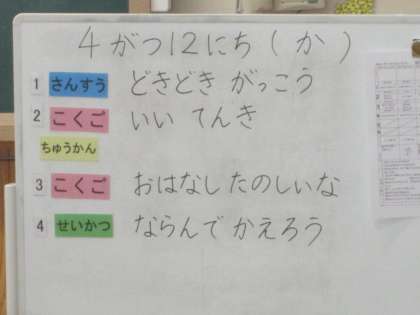 4がつ12にち(か)
1 さんすう どきどき がっこう
2 こくご いい てんき
ちゅうかん
3 こくご おはなし たのしいな
4 せいかつ ならんで かえろう